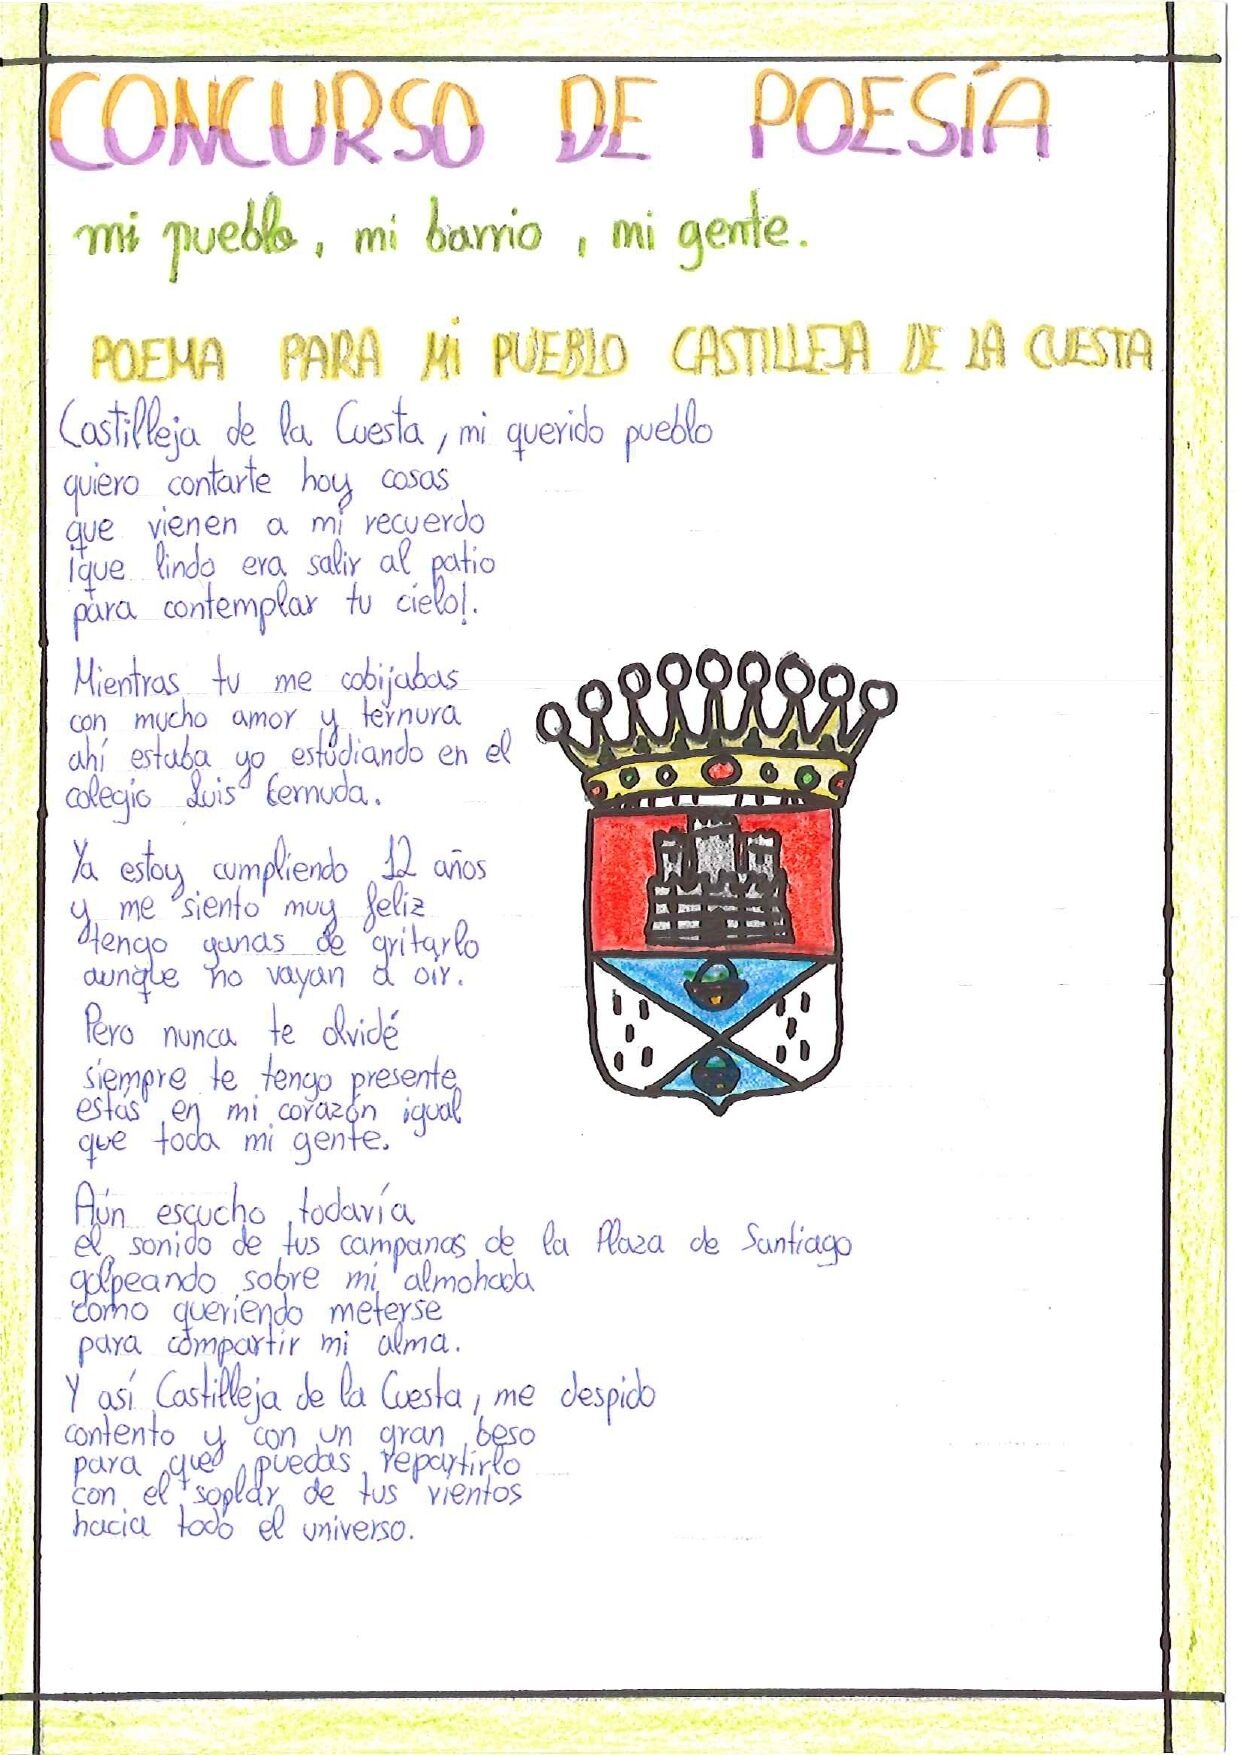 CONCURSO DE POESÍA
mi pueblo, mi barrio, mi gente.
POEMA PARA Mi PUEBLO CASTILLEJA DE LA CUESTA
Castilleja de la Cuesta, mi querido pueblo
quiero contarte hoy cosas
que vienen a mi recuerdo
¡que lindo era salir al patio
para contemplar tu cielo!.
Mientras tu me cobijabas
con mucho amor y ternura
ahí estaba yo estudiando en el
colegio Luis Cernuda.
Ya estoy cumpliendo 12 años
y me siento muy feliz
tengo ganas de gritarlo
aunque no vayan a oir.
Pero nunca te olvidé
siempre te tengo presente
estás en mi corazón igual
que toda mi gente.
Aún escucho todavía
el sonido de tus campanas de la Plaza de Santiago
golpeando sobre mi almohada
como queriendo meterse
para compartir mi alma.
Y así Castilleja de la Cuesta, me despido
contento y con un gran beso
para que puedas repartirlo
con el soplar de tus vientos
hacia todo el universo.